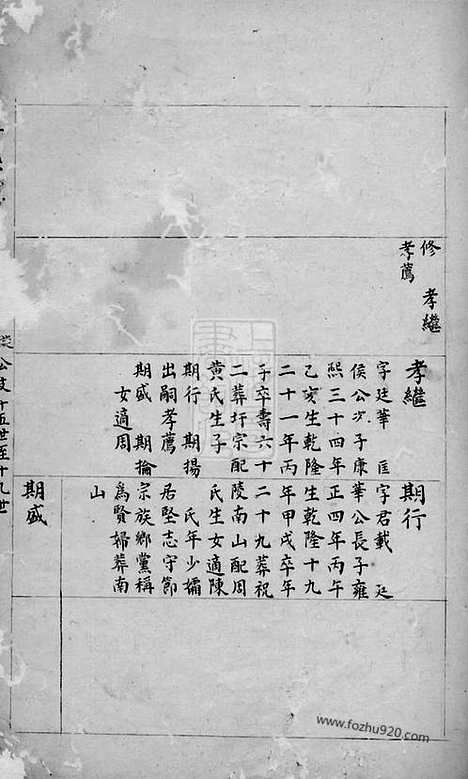 修 孝繼
孝薦
孝繼
字廷華 匡
侯公次子康
熙三十四年
乙亥生乾隆
二十一年丙
子卒壽六十
二葬圩宗配
黄氏生子
期行 期揚
出嗣孝薦
期盛 期掄
女適周
期行
字君載 廷
華公長子雍
正四年丙午
生乾隆十九
年甲戌卒年
二十九葬祝
陵南山配周
氏生女適陳
氏年少孀
居堅志守節
宗族鄉黨稱
爲賢婦葬南
山
期盛
公支十五世至十九世
www.fozhu920.com